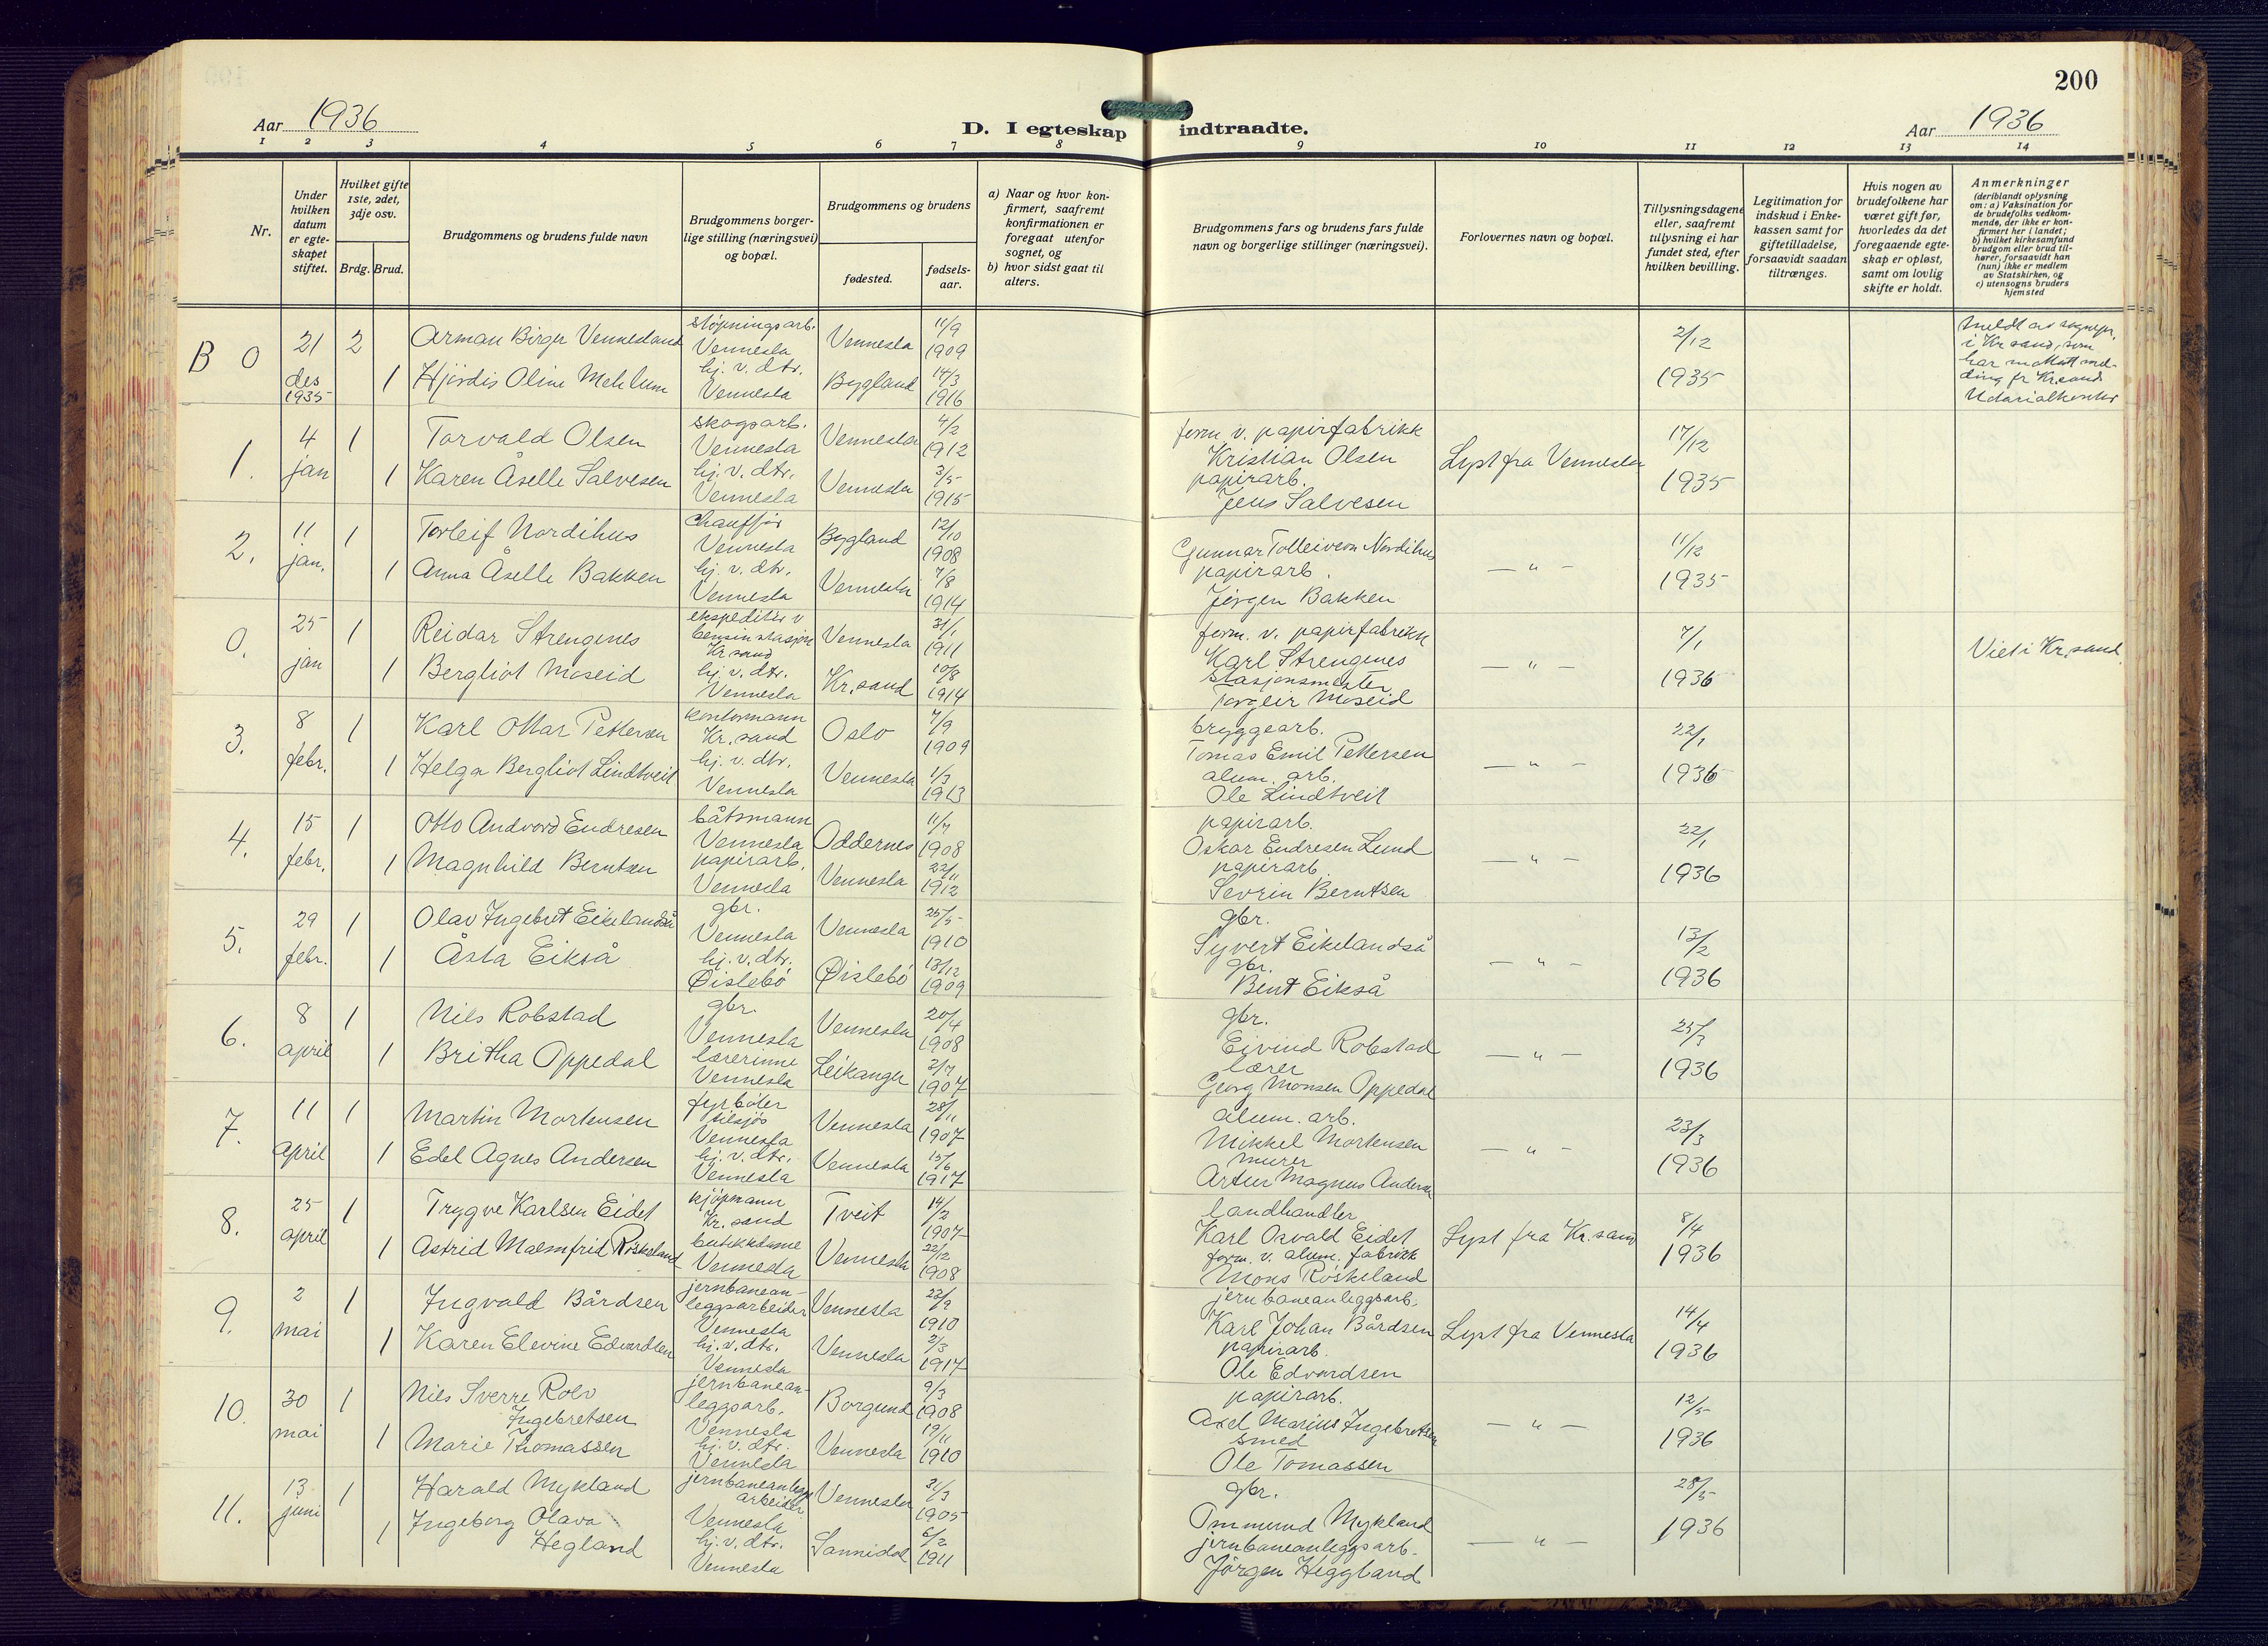 200
Aar 1936
D. I egteskap indtraadte.
Aar 1936
1 2 3 4 5 6 7 8 9 10 11 12 13 14
Nr.
Under hvilken datum er egteskapet stiftet.
Hvilket gifte 1ste, 2det, 3dje osv.
Brdg. Brud.
Brudgommens og brudens fulde navn
Brudgommens borgerlige stilling (næringsvei) og bopæl.
Brudgommens og brudens
fødested.
fødselsaar.
a) Naar og hvor konfirmert, saafremt konfirmationen er foregaat utenfor sognet, og
b) hvor sidst gaat til alters.
Brudgommens fars og brudens fars fulde navn og borgerlige stillinger (næringsvei).
Forlovernes navn og bopæl.
Tillysningsdagene eller, saafremt tillysning ei har fundet sted, efter hvilken bevilling.
Legitimation for indskud i Enkekassen samt for giftetilladelse, forsaavidt saadan tiltrænges.
Hvis nogen av brudefolkene har været gift før, hvorledes da det foregaaende egteskap er opløst, samt om lovlig skifte er holdt.
Anmerkninger
(deriblandt oplysning om: a) Vaksination for de brudefolks vedkommende, der ikke er konfirmert her i landet; b) hvilket kirkesamfund brudgom eller brud tilhører, forsaavidt han (hun) ikke er medlem av Statskirken, og c) utensogns bruders hjemsted
B 0 21 des 1935 2 Arman Birger Vennesland støpningsarb. Vennesla Vennesla 11/9 1909 2/12 1935
i Kr.sand, som
1 Hjördis Oline Mehlum hj. v. dtr. Vennesla Bygland 14/3 1916
1. 4 jan 1 Torvald Olsen skogsarb. Vennesla Vennesla 4/2 1912 form. v. papirfabrikk Kristian Olsen Lyst fra Vennesla 17/12 1935
1 Karen Åselle Salvesen hj. v. dtr. Vennesla Vennesla 3/5 1915 papirarb. Jens Salvesen
2. 11 jan. 1 Torleif Nordihus Chauffør Vennesla Bygland 12/10 1908 Gunnar Tolleivson Nordihus — " — 11/12 1935
1 Anna Åselle Bakken hj. v. dtr. Vennesla Vennesla 7/8 1914 papirarb. Jörgen Bakken
0. 25 jan 1 Reidar Strengenes ekspeditør v bensinstasjon Kr sand Vennesla 31/1 1911 form. v. papirfabrikk Karl Strengenes — " — 7/1 1936 Viet i Kr.sand
1 Bergliot Moseid hj. v. dtr. Vennesla Kr.sand 10/8 1914 Stasjonsmester Torgeir Moseid
3. 8 febr. 1 Karl Ottar Pettersen kontormann Kr.sand Oslo 7/9 1909 bryggearb. Tomas Emil Pettersen — " — 22/1 1936
1 Helga Bergliot Lindtveit hj. v. dtr. Vennesla Vennesla 1/3 1913 alum. arb. Ole Lindtveit
4. 15 febr. 1 Otto Andvord Endresen båtsmann Vennesla Oddernes 11/7 1908 papirarb. Oskar Endresen Lund — " — 22/1 1936
1 Magnhild Berntsen papirarb. Vennesla Vennesla 22/11 1912 papirarb. Sevrin Berntsen
5. 29 febr. 1 Olav Ingebret Eikelandså gbr. Vennesla Vennesla 25/5 1910 gbr. Syvert Eikelandså — " — 13/2 1936
1 Åsta Eikså hj. v. dtr. Øislebö Øislebö 13/12 1909 gbr. Bent Eikså
6. 8 april 1 Nils Robstad gbr. Vennesla Vennesla 20/4 1908 gbr. Eivind Robstad — " — 25/3 1936
1 Britha Oppedal lærerinne Vennesla Leikanger 2/7 1907 lærer Georg Monsen Oppedal
7. 11 april 1 Martin Mortensen fyrböter tilsjös Vennesla Vennesla 28/11 1907 alum. arb. Mikkel Mortensen — " — 23/3 1936
1 Edel Agnes Andersen hj. v. dtr. Vennesla Vennesla 15/6 1917 murer Artur Magnus Andersen
8. 25 april 1 Trygve Karlsen Eidet kjöpmann Kr.sand Tveit 14/2 1907 landhandler Karl Osvald Eidet Lyst fra Kr.sand 8/4 1936
1 Astrid Malmfrid Röskeland butikkdame Vennesla Vennesla 22/12 1908 form. v. alum. fabrikk Mons Röskeland
9. 2 mai 1 Ingvald Bårdsen jernbaneanleggsarbeider Vennesla Vennesla 22/9 1910 jernbaneanleggsarb. Karl Johan Bårdsen Lyst fra Vennesla 14/4 1936
1 Karen Elevine Edvardsen hj. v. dtr. Vennesla Vennesla 2/3 1917 papirarb. Ole Edvardsen
10. 30 mai 1 Nils Sverre Rolv Ingebretsen jernbaneanleggsarb. Vennesla Borgund 9/3 1908 papirarb. Axel Marius Ingebretsen — " — 12/5 1936
1 Marie Thomassen hj. v. dtr. Vennesla Vennesla 19/11 1910 smed Ole Tomassen
11. 13 juni 1 Harald Mykland jernbaneanleggsarbeider Vennesla Vennesla 31/3 1905 gbr. Ommund Mykland — " — 28/5 1936
1 Ingeborg Olava Hegland hj. v. dtr. Vennesla Sannidal 6/2 1911 jernbaneanleggsarb. Jörgen Heggland